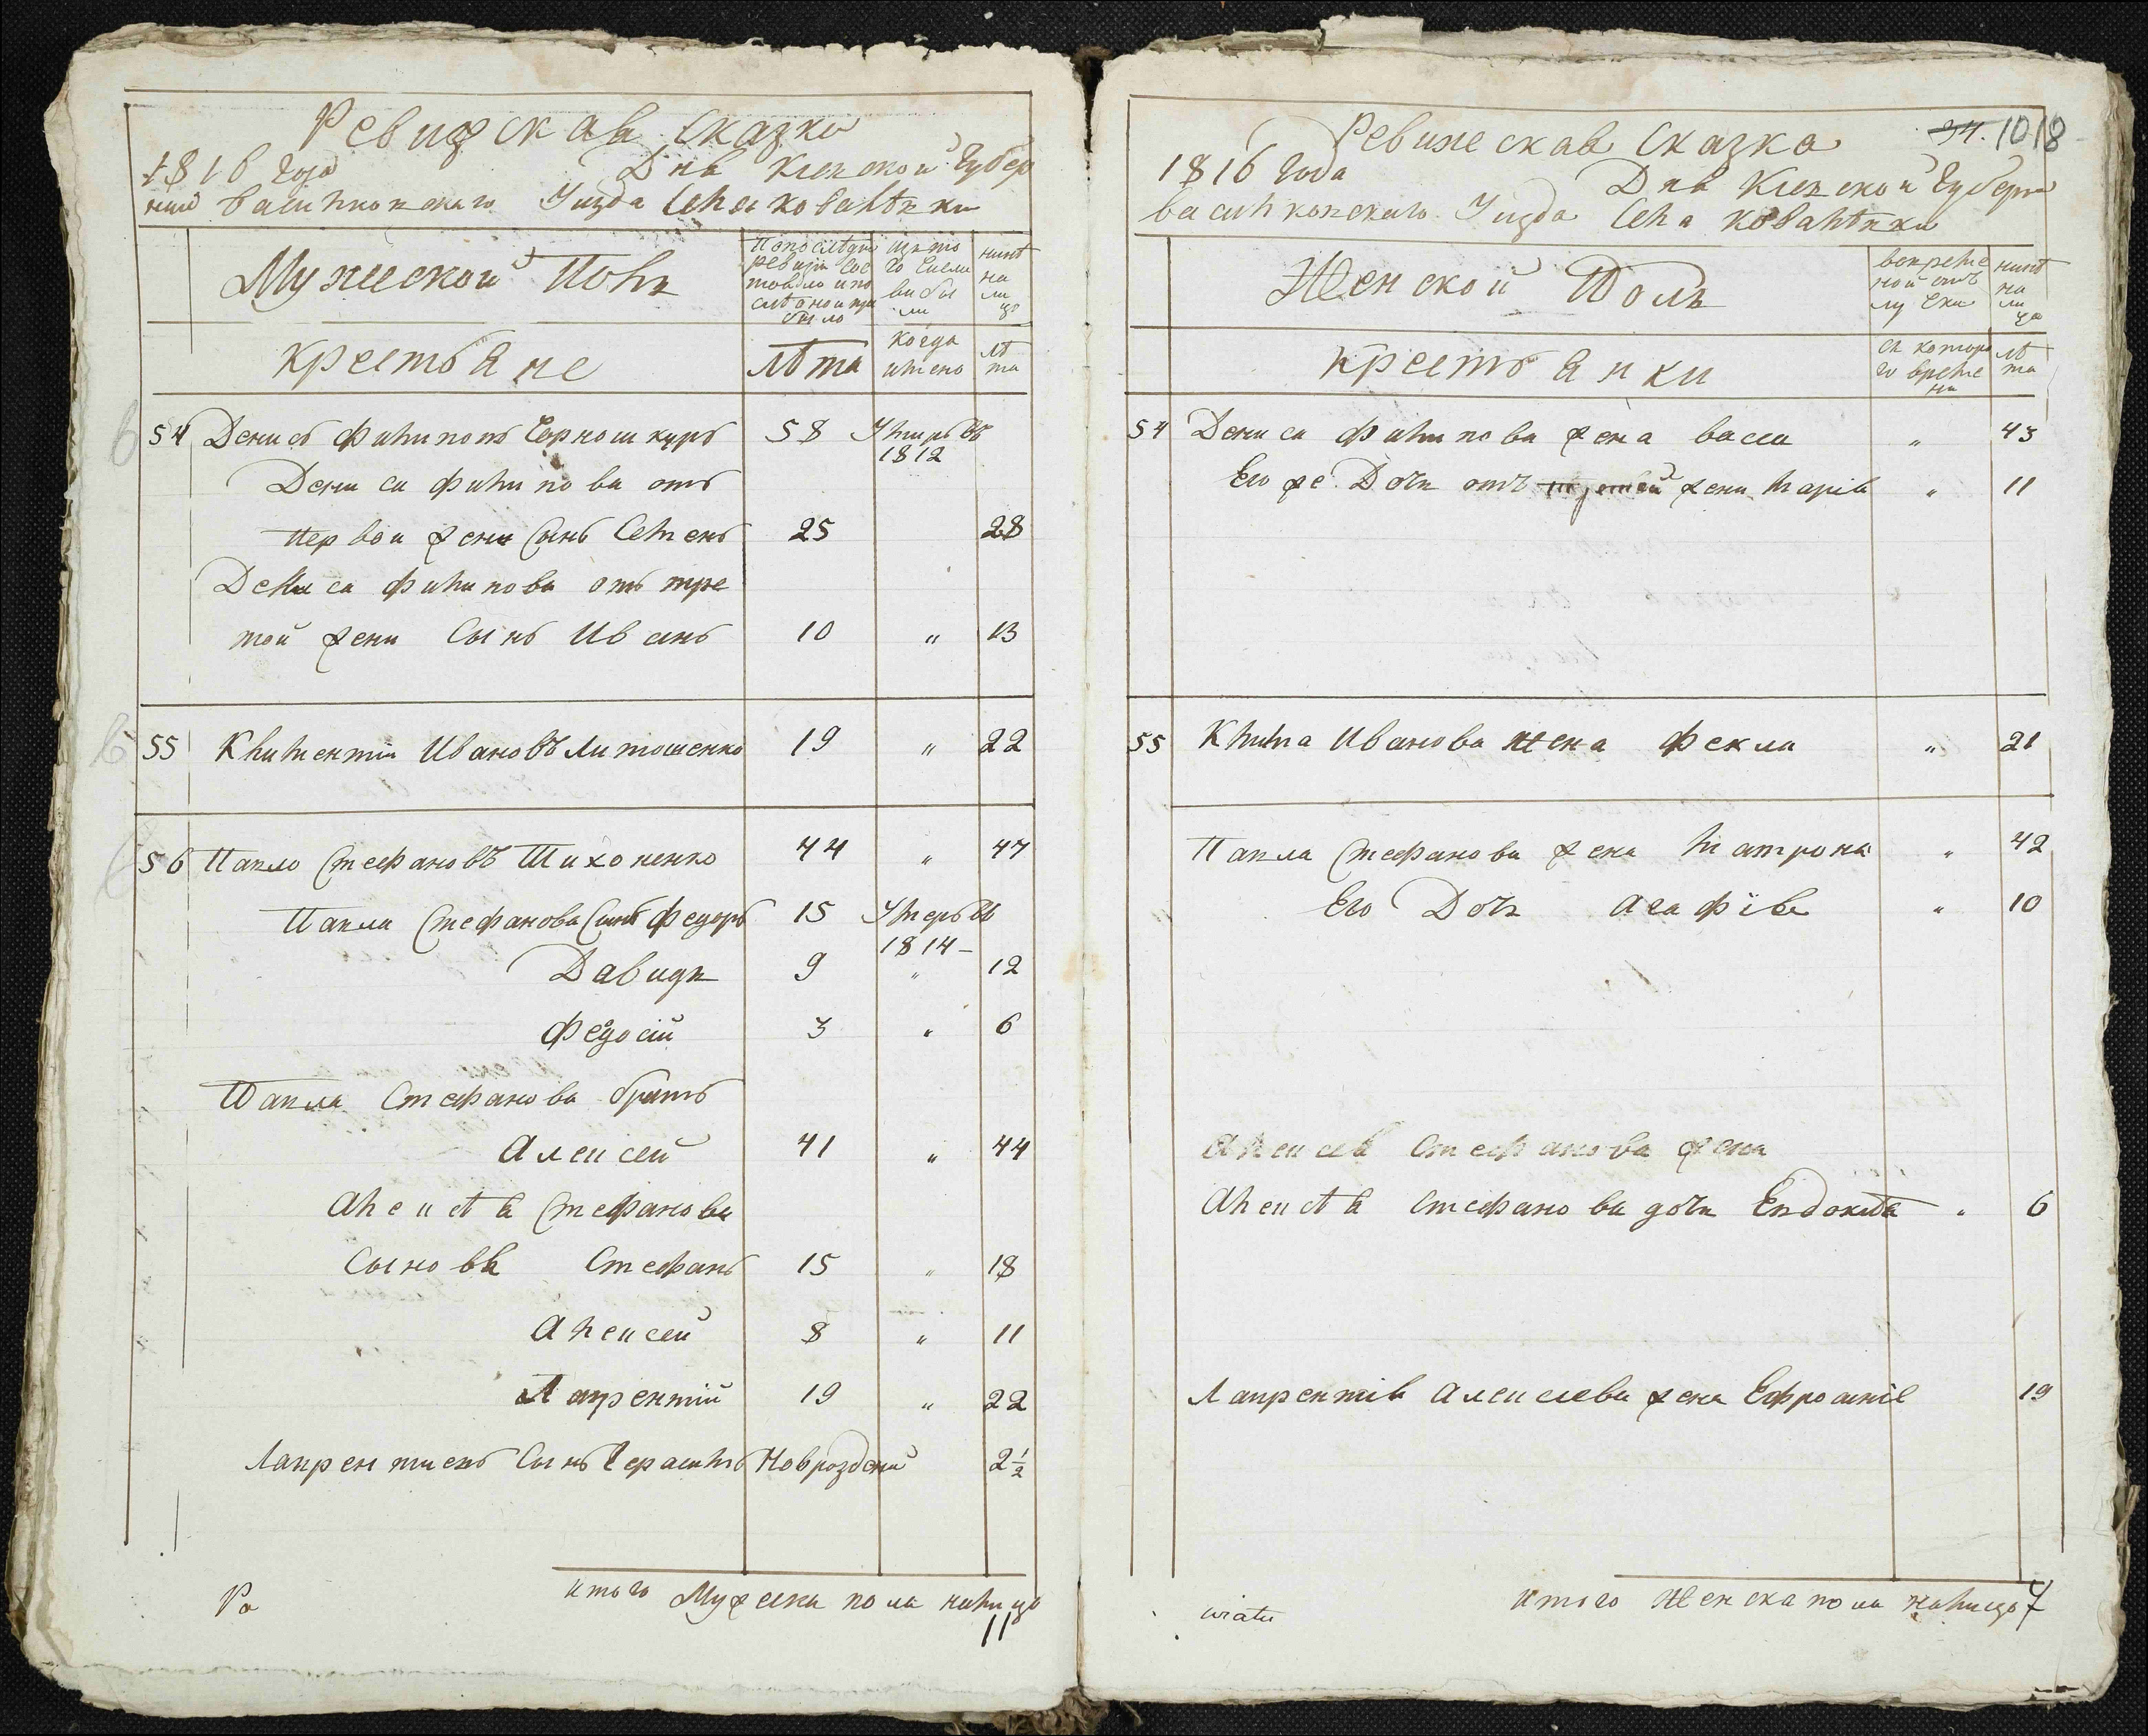 Ревизская Сказка
1816 Года Дня Киевской Губер
нии Васильковскаго Уизда Села Ковалѣвки
Мужеской Полъ
По последней ревизіи состояло и после оной прибыло
изъ того числа выбыли
нинѣ на лицо
крестьяне
лѣта
когда имено
лѣта
54 Денисъ Филиповъ Чорношкуръ 58 Умиръ въ 1812
Дениса Филипова отъ
первои жени сынъ Семенъ 25 28
Дениса Филипова отъ тре
той жени Сынъ Иванъ 10 " 13
55 Климентій Ивановъ Литошенко 19 " 22
56 Павло Стефановъ Тихоненко 44 " 47
Павла Стефанова Синъ Федоръ 15 Умеръ въ 1814
Давидъ 9 " 12
Федосій 3 " 6
Павла Стефанова братъ
Алексей 41 " 44
Алексѣя Стефанова
Сыновя Стефанъ 15 " 18
Алексей 8 " 11
Лаврентій 19 " 22
Лаврентиевъ Сынъ Герасимъ Новрозденй 2½
Ра
итого Мужеска пола налицо
11
34. 1018
Ревижская Сказка
1816 Года Дня Киевской Губерн
Васильковскаго Уизда Села Ковалѣвки
Женской Полъ
вовремено отлучки
нинѣ на лицо
крестьянки
съ которого времени
лѣта
54 Дениса Филипова жена Васса " 43
Его же Дочь отъ третей жени Марія " 11
55 Клима Иванова жена Фекла " 21
Павла Стефанова жена Матрона " 42
Его Дочь Агафія " 10
Алексея Стефанова жена
Алексѣя Стефанова дочь Евдокія " 6
Лаврентія Алексеева жена Ефросиніе 19
итого Женска пола налицо 7